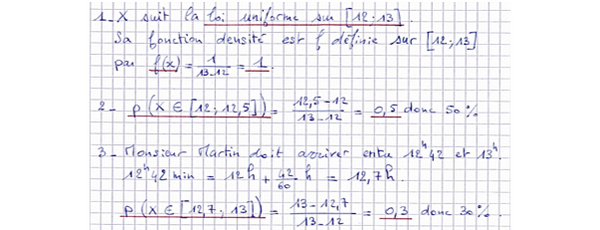 1_ X suit la loi uniforme sur [12 ; 13]
Sa fonction densité est f définie sur [12 ; 13]
par f(x) = 1/(13-12) = 1.
2_ p(X ∈ [12 ; 12,5]) = (12,5 - 12)/(13 - 12) = 0,5 donc 50 %
3_ Monsieur Martin doit arriver entre 12h42 et 13h.
12h42 min = 12h + 42/60 h = 12,7h.
p(X ∈ [12,7 ; 13]) = (13 - 12,7)/(13 - 12) = 0,3 donc 30 %.